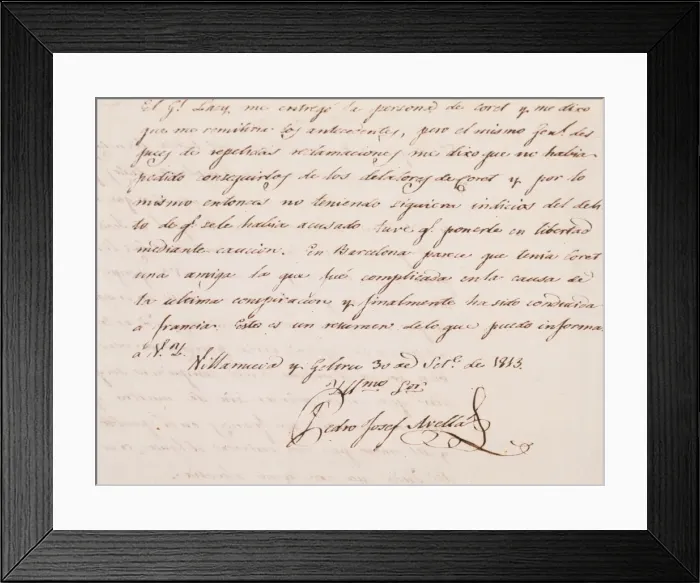 El Gl. Lacy, me entregó la persona de Coret y me dixo
que me remitiria los antecedentes, pero el mismo Genl. des
pues de repetidas reclamaciones me dixo que no habia
podido conseguirlos de los delatores de Coret y por lo
mismo entonces no teniendo siquiera indicios del deli
to de ql. se le habia acusado tuve ql. ponerle en libertad
mediante caucion. En Barcelona parece que tenia Coret
una amiga la que fué complicada en la causa de
la ultima conspiracion y finalmente ha sido conducida
á francia. Esto es un resumen de lo que puedo informa
á V. I.
Villanueva y Geltru 30 de Sete. de 1813.
Illmo. Sor.
Pedro Josef Avellá